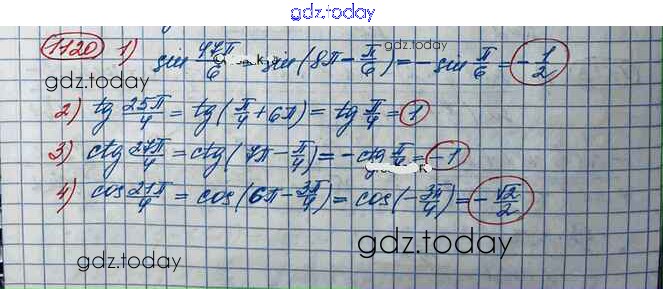 gdz.today
1120 1) sin 47π/6 = sin(8π - π/6) = - sin π/6 = - 1/2
gdz.today
2) tg 25π/4 = tg(π/4 + 6π) = tg π/4 = 1
3) ctg 27π/4 = ctg(7π - π/4) = - ctg π/4 = - 1
4) cos 21π/4 = cos(6π - 3π/4) = cos(- 3π/4) = - √2/2
gdz.today
gdz.today